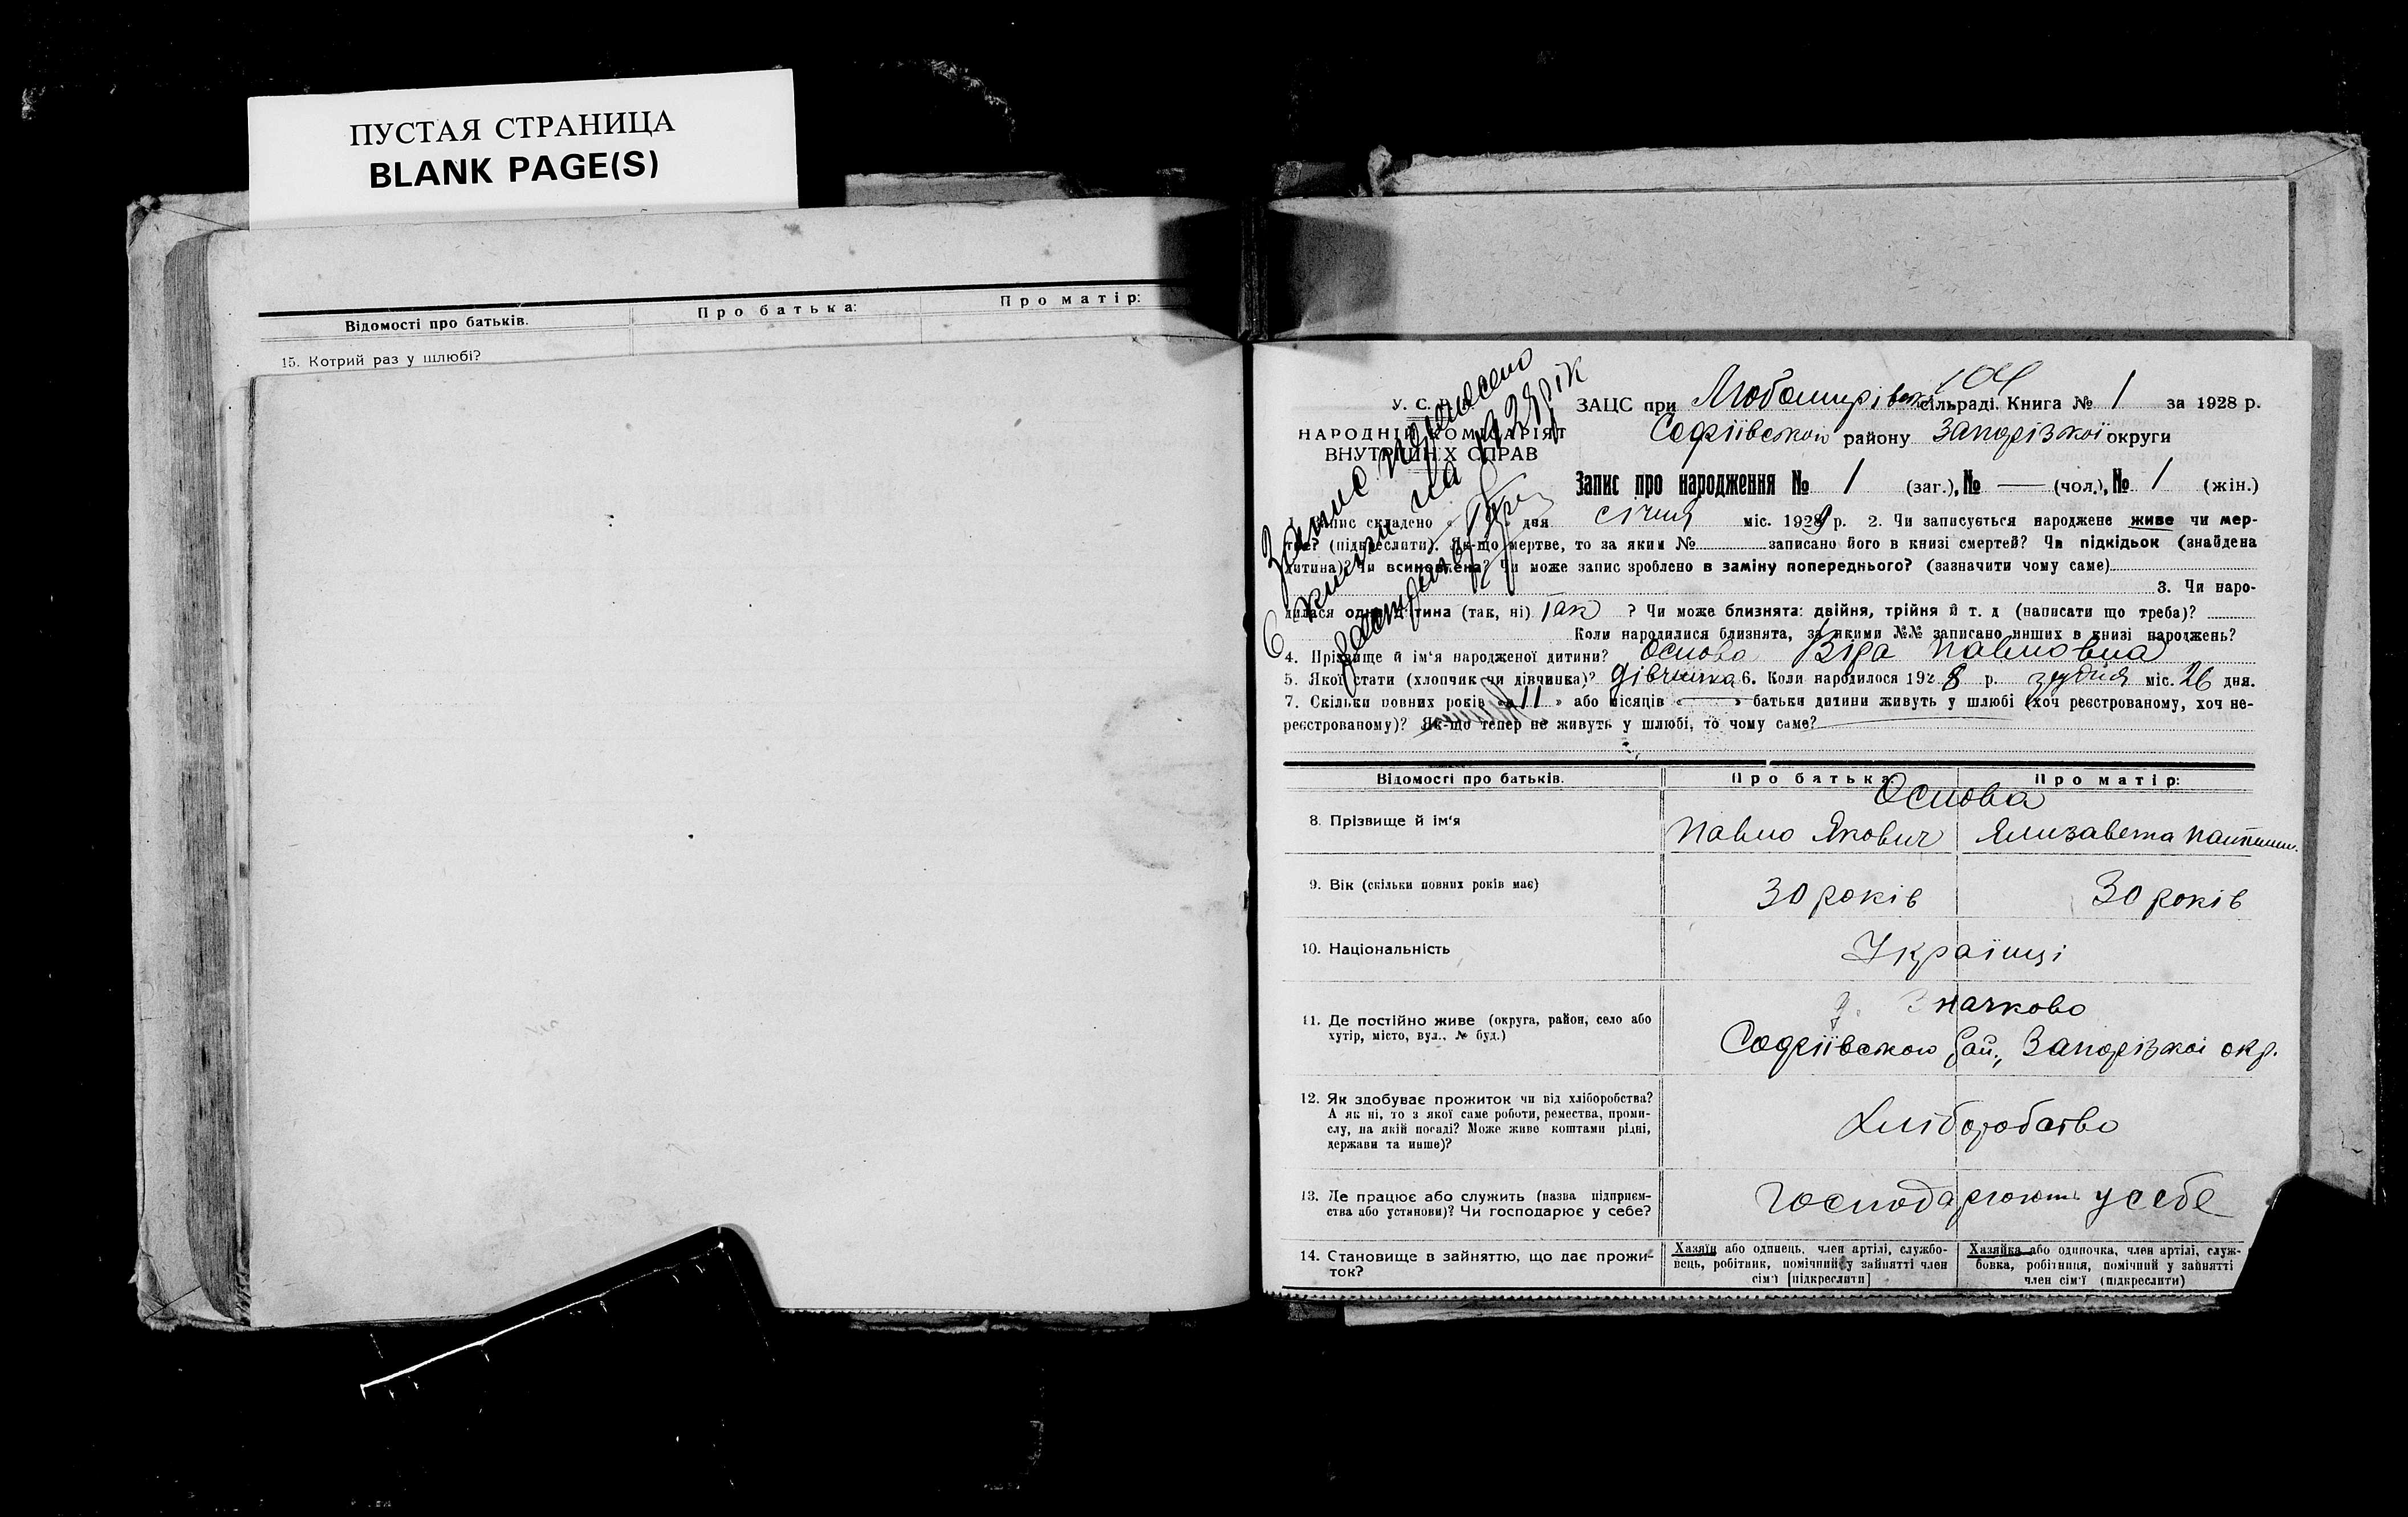 ПУСТАЯ СТРАНИЦА
BLANK PAGE(S)
Відомості про батьків. Про батька: Про матір:
15. Котрий раз у шлюбі?
Запис перенесено
с книги на 1929 рік
У. С.
НАРОДНІЙ КОМІСАРІЯТ
ВНУТРІШНІХ СПРАВ
104
ЗАЦС при Любомирівськ сільраді. Книга № 1 за 1928 р.
Софіївського району Запорізької округи
Запис про народження № 1 (заг.), № — (чол.), № 1 (жін.)
Запис складено « 1 » дня січня міс. 1929 р. 2. Чи записується народжене живе чи мер-
тве? (підкреслити). Як-що мертве, то за яким № записано його в книзі смертей? Чи підкідьок (знайдена
дитина)? Чи всиновлена? Чи може запис зроблено в заміну попереднього? (зазначити чому саме)
3. Чи наро-
дилася одна дитина (так, ні) Так ? Чи може близнята: двійня, трійня й т. д (написати що треба)?
Коли народилися близнята, за якими №№ записано инших в книзі народжень?
4. Прізвище й ім'я народженої дитини? Основа Віра Павловна
5. Якої стати (хлопчик чи дівчинка)? дівчинка 6. Коли народилося 1928 р. грудня міс. 26 дня.
7. Скільки повних років « 11 » або місяців « — » батьки дитини живуть у шлюбі (хоч реєстрованому, хоч не-
реєстрованому)? Як-що тепер не живуть у шлюбі, то чому саме?
Відомості про батьків. Про батька: Про матір:
Основа
8. Прізвище й ім'я Павло Якович Єлизавета
9. Вік (скільки повних років має) 30 років 30 років
10. Національність Українці
11. Де постійно живе (округа, район, село або
хутір, місто, вул., № буд.)
Значково
Софіївського рай., Запорізкої окр.
12. Як здобуває прожиток чи від хліборобства?
А як ні, то з якої саме роботи, ремества, проми-
слу, на якій посаді? Може живе коштами рідні,
держави та инше)?
Хліборобство
13. Де працює або служить (назва підприєм-
ства або установи)? Чи господарює у себе?
господарюють у себе
14. Становище в зайняттю, що дає прожи-
ток?
Хазяїн або одинець, член артілі, службо-
вець, робітник, помічний у зайнятті член
сім'ї [підкреслити]
Хазяйка або одиночка, член артілі, служ-
бовка, робітниця, помічний у зайнятті
член сім'ї (підкреслити)